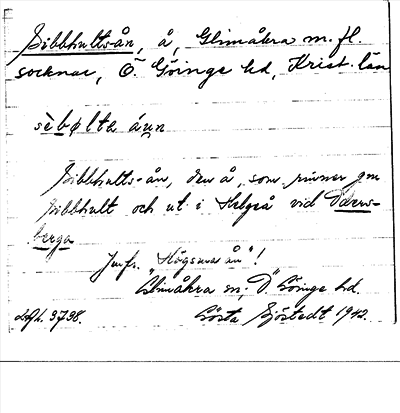 Sibbhults-ån, å, Glimåkra m. fl.
socknar, Ö. Göinge hd, Krist. län
sèbølta áụn
Sibbhults-ån, den å, som rinner gm
Sibbhult och ut i Helgeå vid
berga
Jmfr. "Högsma ån"!
Glimåkra sn, Ö. Göinge hd.
Gösta Sjöstedt 1942.